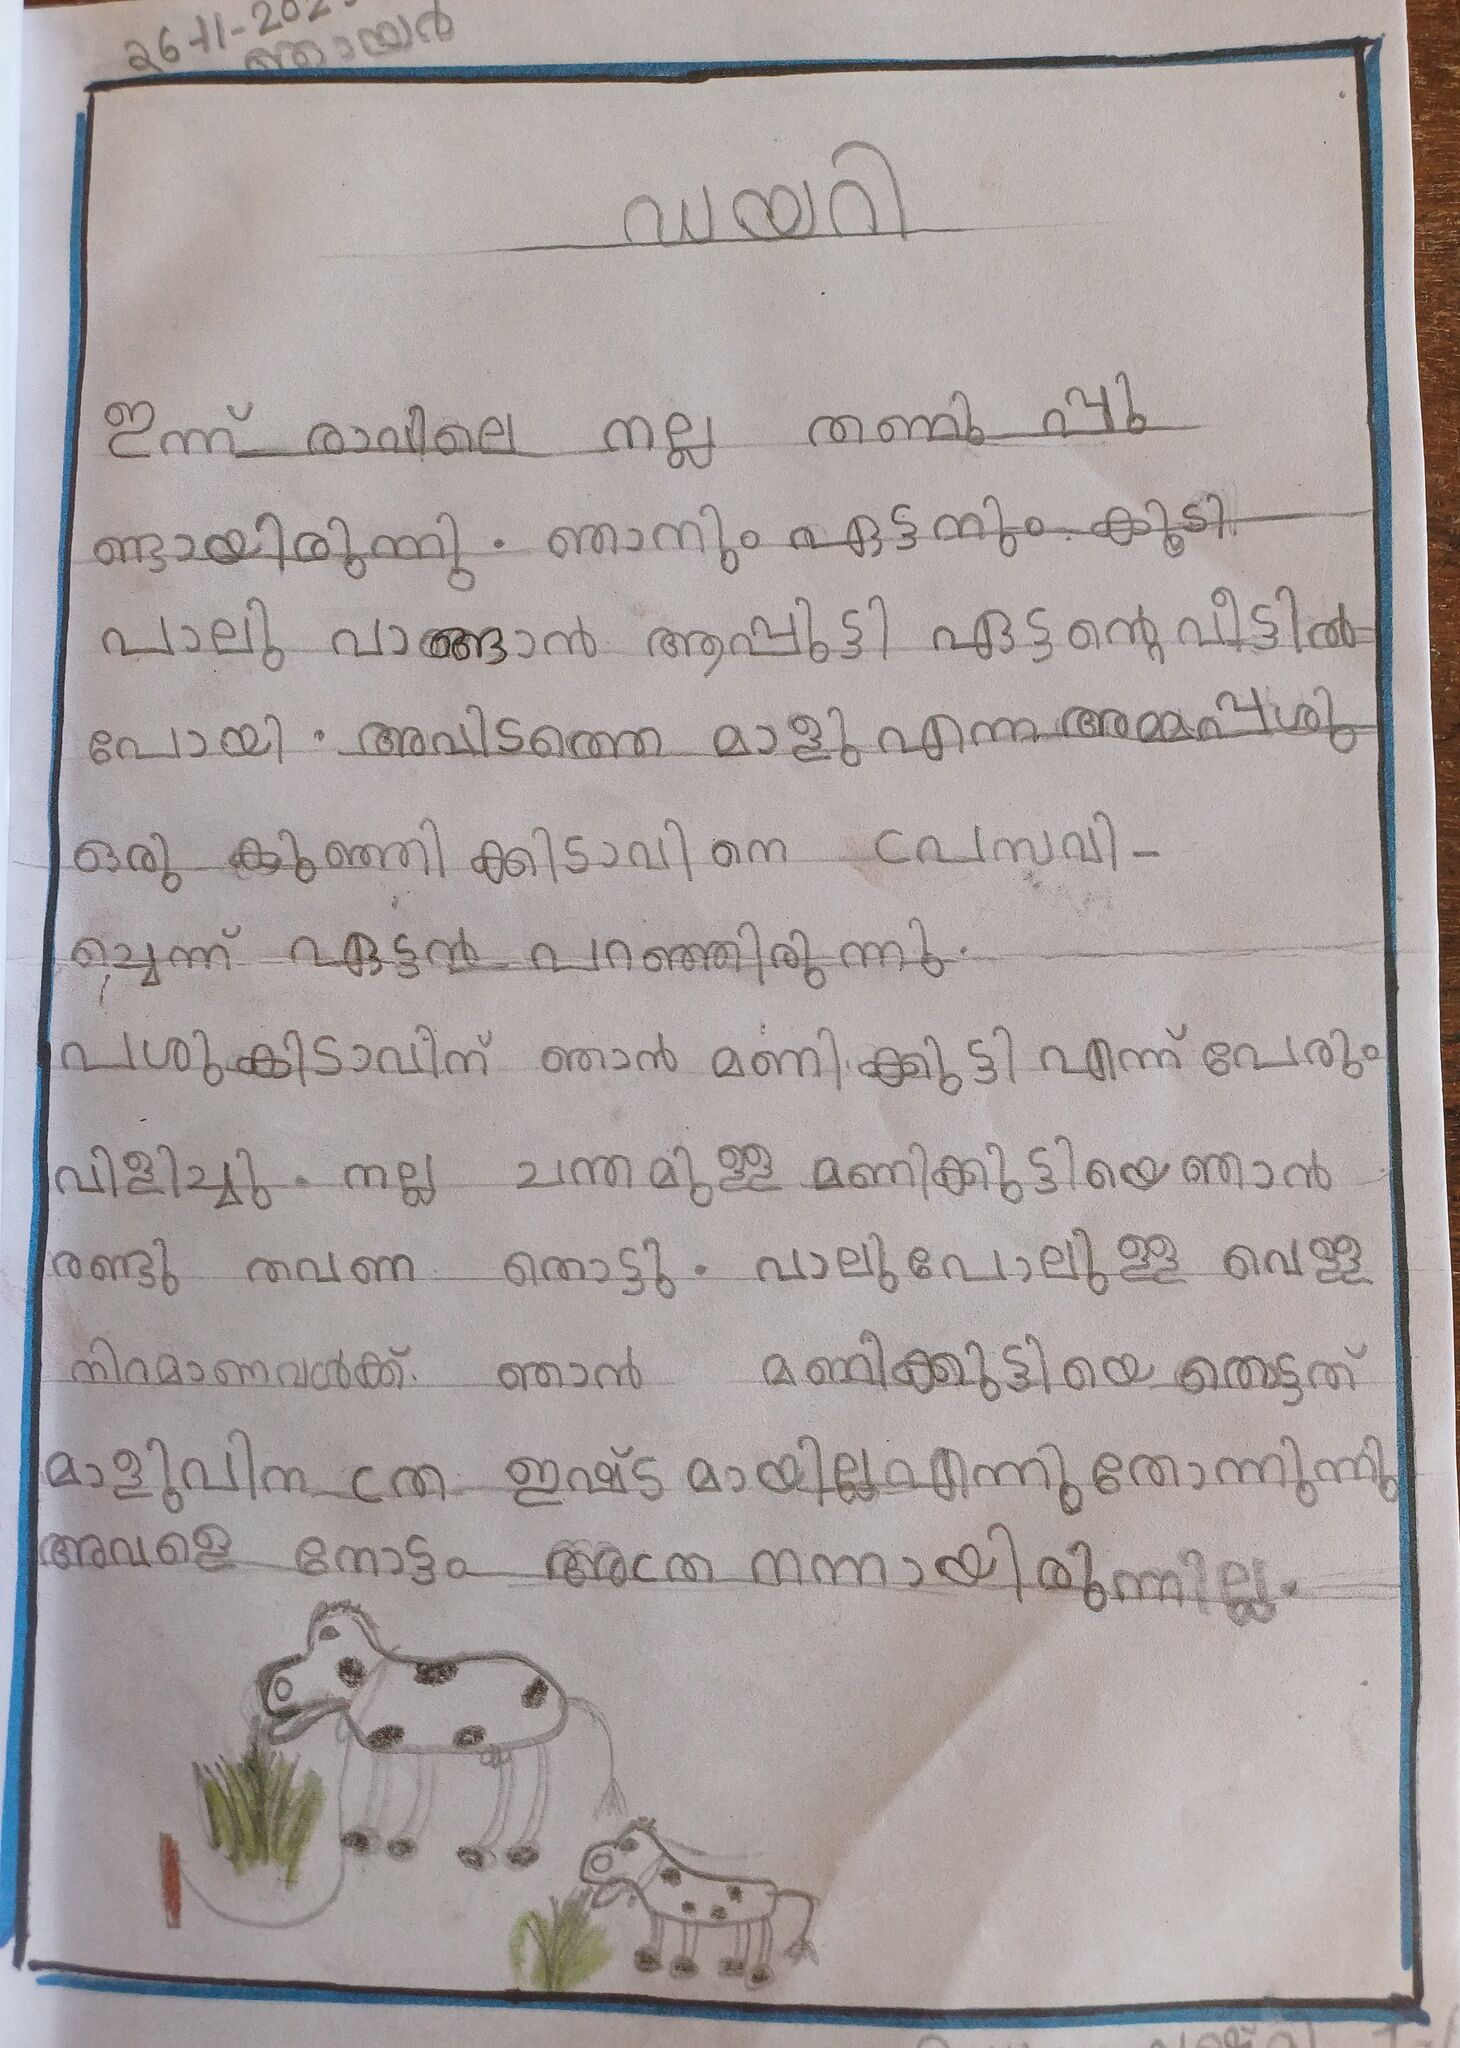 ഞായർ
ഡയറി
ഇന്ന് രാവിലെ നല്ല തണുപ്പു
ണ്ടായിരുന്നു. ഞാനും ഏട്ടനും കൂടി
പാലു വാങ്ങാൻ ആപ്പുട്ടി ഏട്ടന്റെ വീട്ടിൽ
പോയി. അവിടത്തെ മാളു എന്ന അമ്മപ്പശു
ഒരു കുഞ്ഞിക്കിടാവിനെ പ്രസവി-
ച്ചെന്ന് ഏട്ടൻ പറഞ്ഞിരുന്നു.
പശുകിടാവിന് ഞാൻ മണിക്കുട്ടി എന്ന് പേരും
വിളിച്ചു. നല്ല ചന്തമുള്ള മണിക്കുട്ടിയെ ഞാൻ
രണ്ടു തവണ തൊട്ടു. പാലുപോലുള്ള വെള്ള
നിറമാണവൾക്ക്. ഞാൻ മണിക്കുട്ടിയെ തൊട്ടത്
മാളുവിന ത്ര ഇഷ്ടമായില്ല എന്നു തോന്നുന്നു
അവളെ നോട്ടം അത്ര നന്നായിരുന്നില്ല.